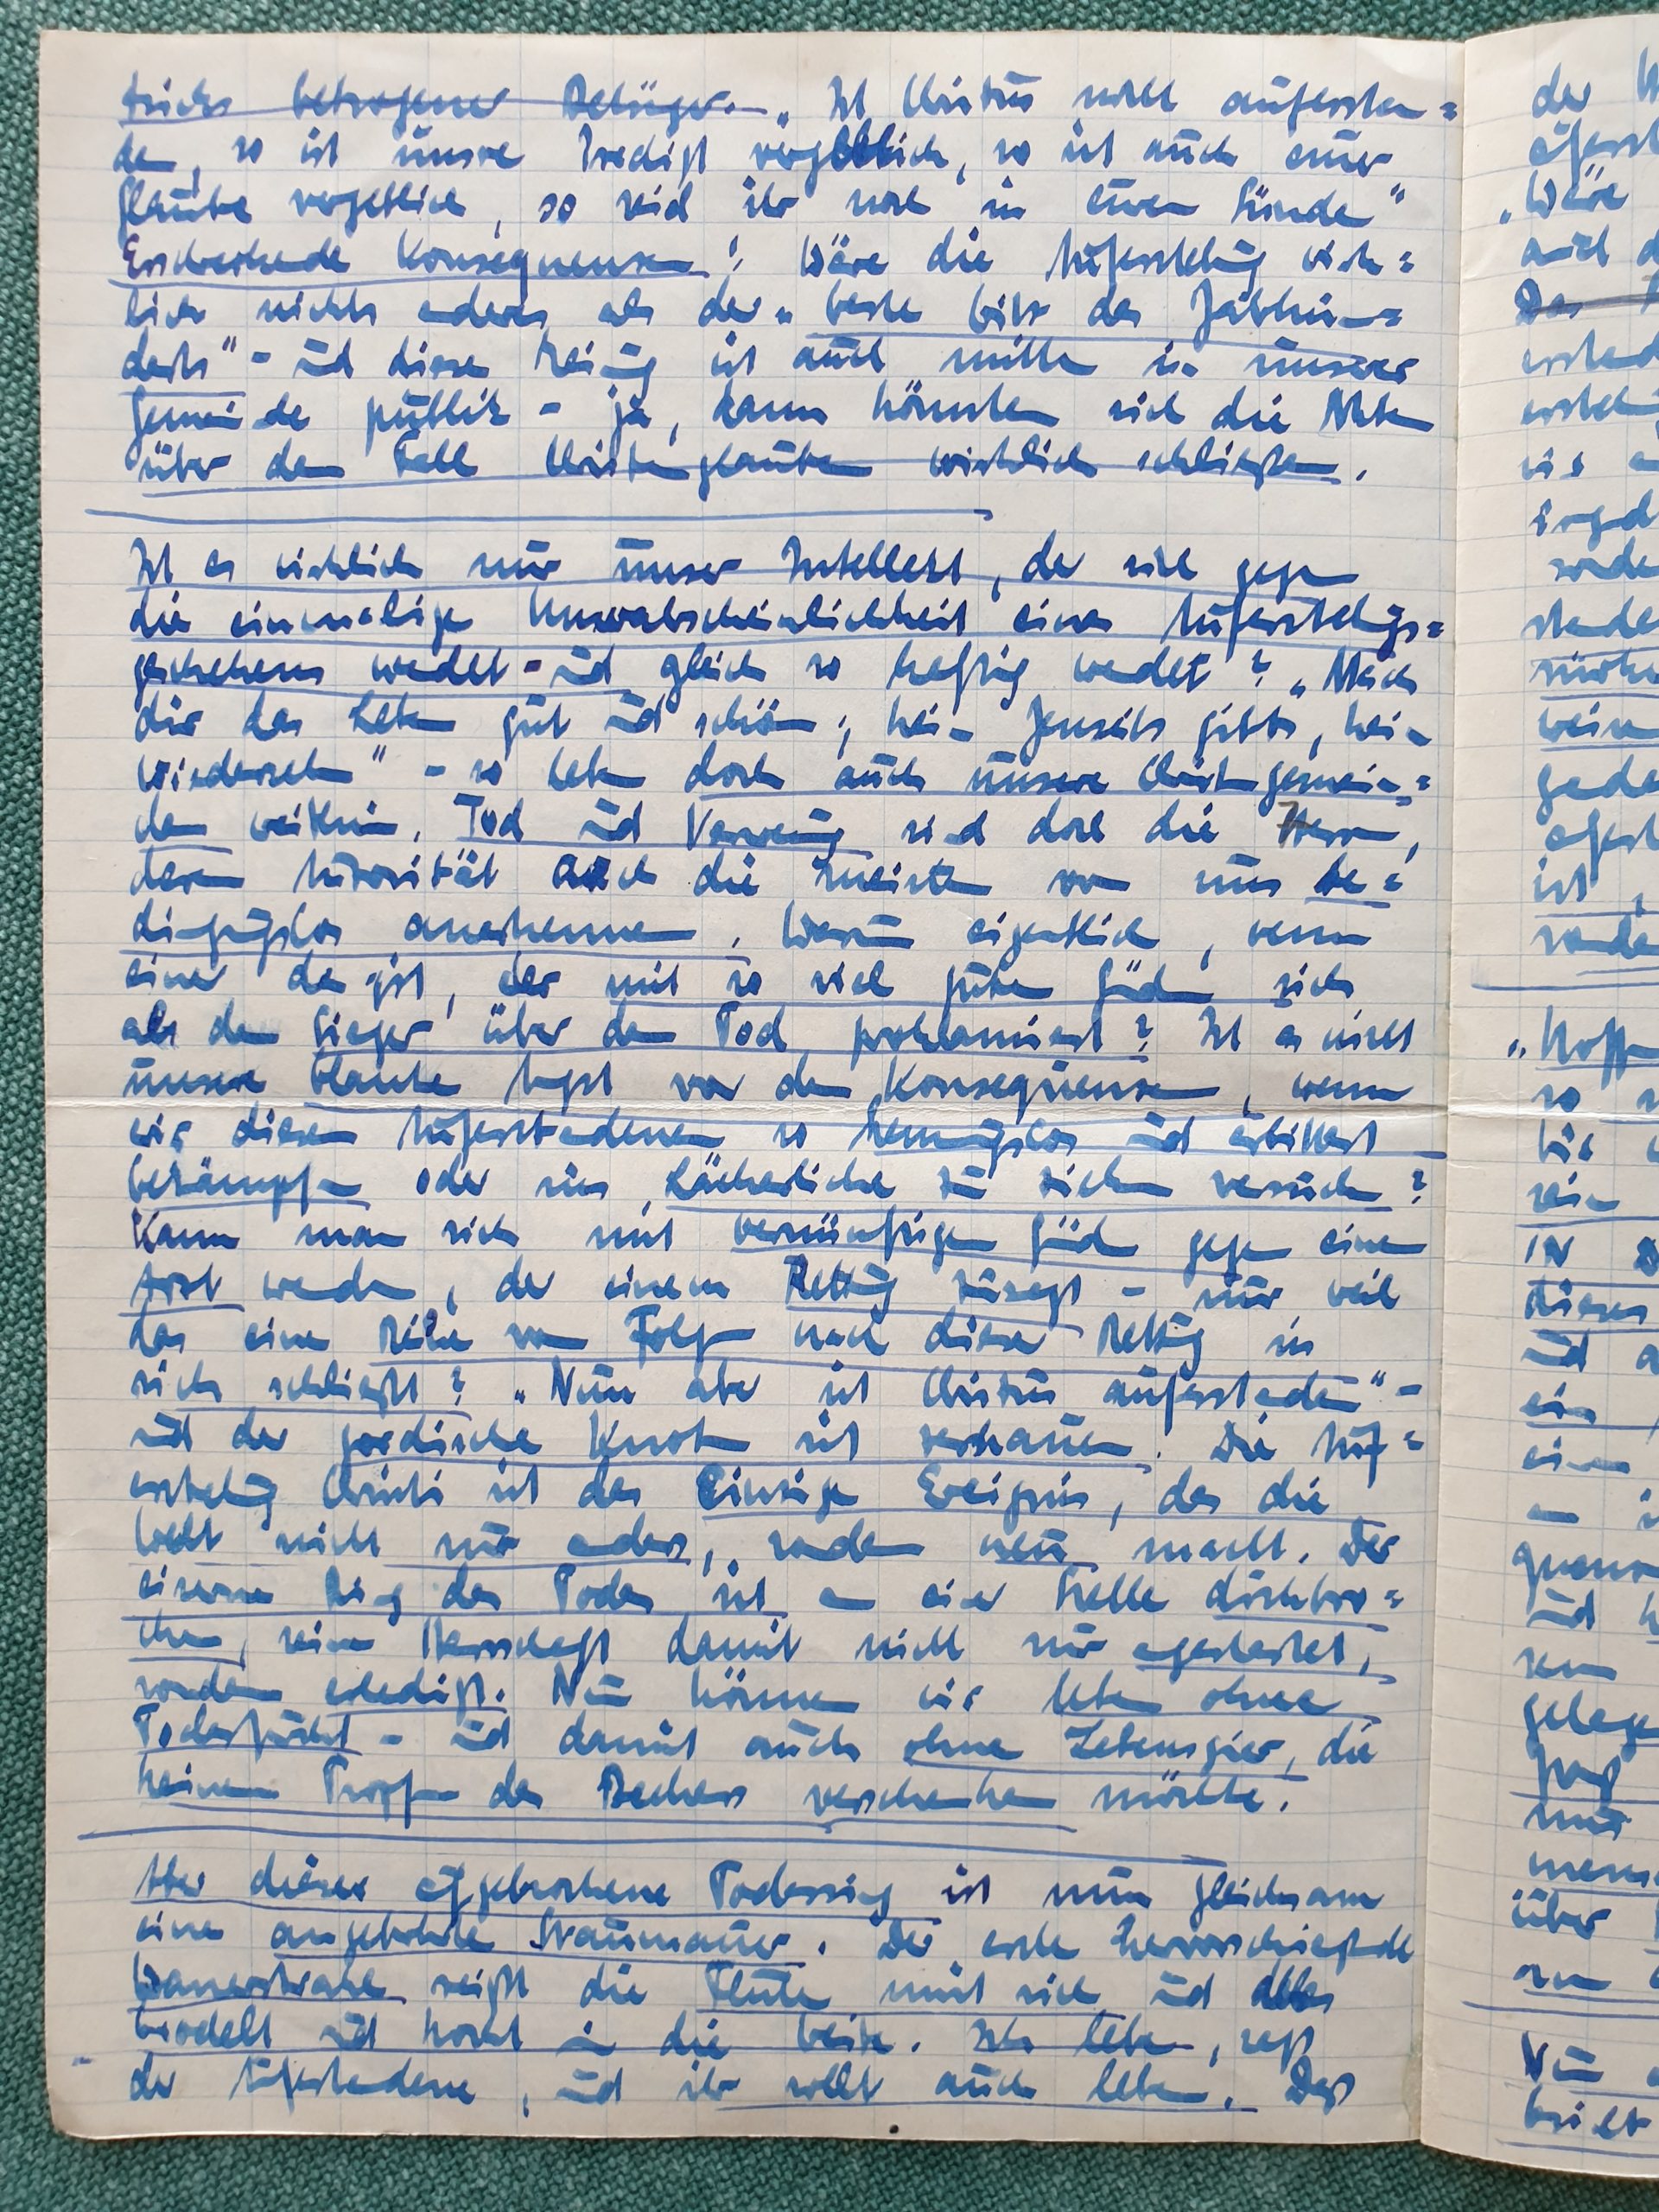 tricks betrogener Betrüger. „Ist Christus nicht auferstan=
den, so ist unsre Predigt vergeblich, so ist auch euer
Glaube vergeblich, so seid ihr noch in euren Sünden"
Erschreckende Konsequenzen! Wäre die Auferstehung wirk=
lich nichts anderes als der „beste Witz des Jahrhun=
derts" - und diese Meinung ist auch mitten in unserer
Gemeinde publik - ja, dann könnten sich die Akten
über den Fall Christenglauben wirklich schließen.
Ist es wirklich nur unser Intellekt, der sich gegen
die einmalige Unwahrscheinlichkeit eines Auferstehungs=
geschehens wendet - und gleich so heftig wendet? „Mach
dir das Leben gut und schön, kein Jenseits gibts, kein
Wiedersehen" - so leben doch auch unsere Christengemein=
den weithin. Tod und Verwesung sind doch die Herren,
deren Autorität auch die meisten von uns be=
dingungslos anerkennen. Warum eigentlich, wenn
einer da ist, der mit so viel guten Gründen sich
als den Sieger über den Tod proklamiert? Ist es nicht
unsere blanke Angst vor den Konsequenzen, wenn
wir diesen Auferstandenen so hemmungslos und erbittert
bekämpfen oder ins Lächerliche zu ziehen versuchen?
Kann man sich mit vernünftigen Gründen gegen einen
Arzt wenden, der einem Rettung zusagt - nur weil
das eine Reihe von Folgen nach dieser Rettung in
sich schließt? „Nun aber ist Christus auferstanden" -
und der gordische Knoten ist zerhauen. Die Auf=
erstehung Christi ist das Einzige Ereignis, das die
Welt nicht nur anders, sondern neu macht. Der
eiserne Ring des Todes ist an einer Stelle durchbro=
chen, seine Herrschaft damit nicht nur angetastet,
sondern erledigt. Nun können wir leben ohne
Todesfurcht - und damit auch ohne Lebensgier, die
keinen Tropfen des Bechers verschenken möchte.
Aber dieser aufgebrochene Todesring ist nun gleichsam
eine angebohrte Staumauer. Der erste hervorschießende
Wasserstrahl reißt die Fluten mit sich und alles
brodelt und kocht in die Weite. Ich lebe, sagt
der Auferstandene, und ihr sollt auch leben. Das
der
„Wäre
auch
Das
ist,
„Hoff
so
sein
dieses
und
und
über
Nun